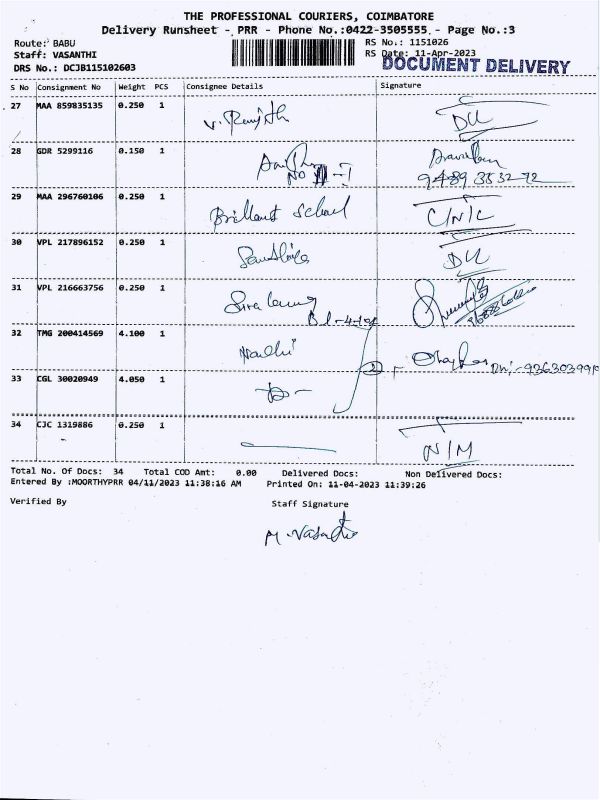 THE PROFESSIONAL COURIERS, COIMBATORE
Delivery Runsheet - PRR - Phone No.:0422-3505555. - Page No.:3
Route: BABU
RS No.: 1151026
Staff: VASANTHI
RS Date: 11-Apr-2023
DRS No.: DCJB115102603
DOCUMENT DELIVERY
S No Consignment No Weight PCS Consignee Details Signature
27 MAA 859835135 0.250 1 V. Ranjith DU
28 GDR 5299116 0.150 1
NO
29 MAA 296760106 0.250 1 Brilliant School C/N/C
30 VPL 217896152 0.250 1 DU
31 VPL 216663756 0.250 1
32 TMG 200414569 4.100 1 Nadhi
2 Ph:-
33 CGL 30020949 4.050 1
34 CJC 1319886 0.250 1 N/M
Total No. Of Docs: 34 Total COD Amt: 0.00 Delivered Docs: Non Delivered Docs:
Entered By :MOORTHYPRR 04/11/2023 11:38:16 AM Printed On: 11-04-2023 11:39:26
Verified By Staff Signature
M. Vasanthi